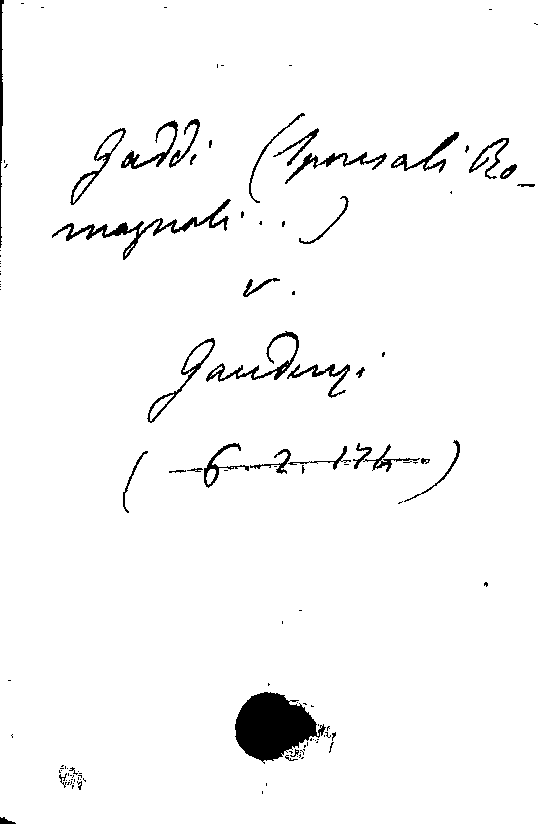 Gaddi (Sponsali Ro-
magnoli...)
v.
Gaudenzi
( 6. 2. 174 )